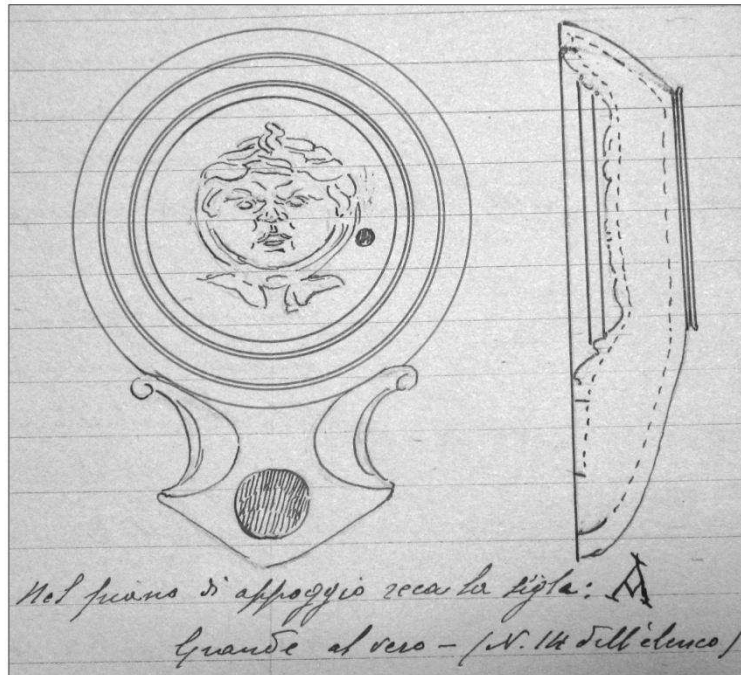 Nel piano di appoggio reca la sigla: A
Grande al vero – (N. 14 dell'elenco)